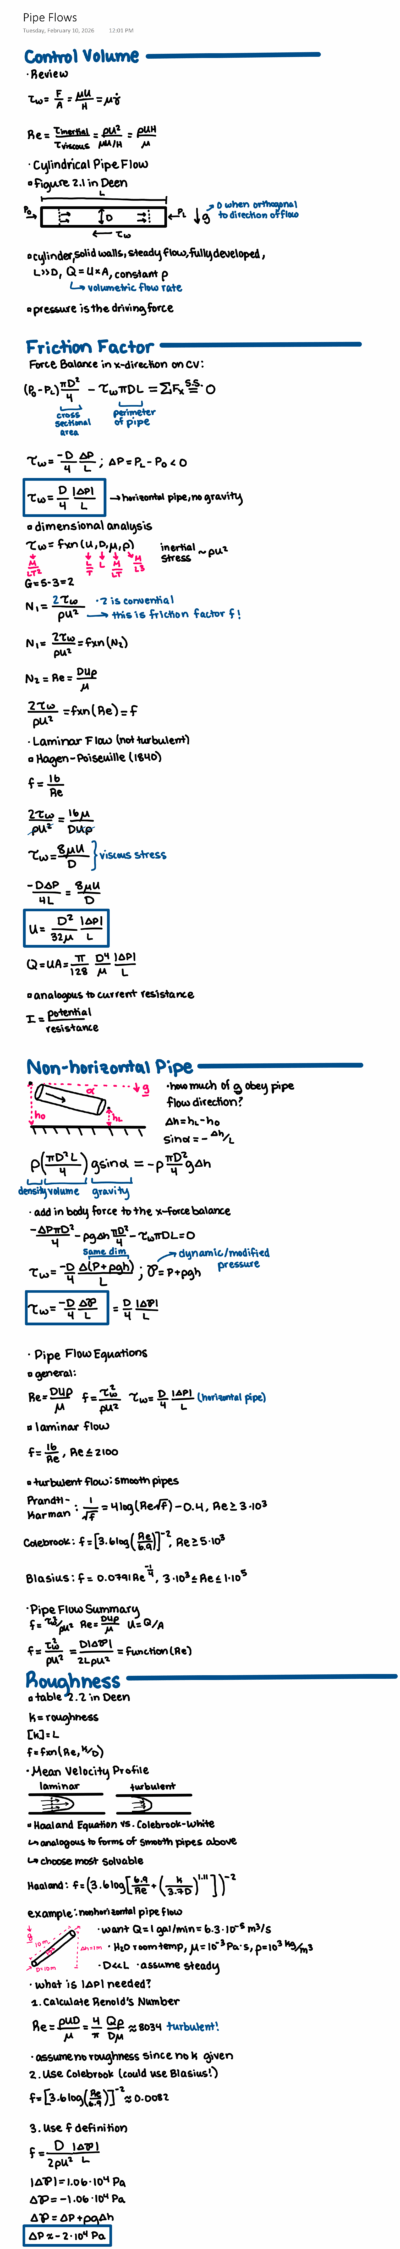 Pipe Flows
Tuesday, February 10, 2026 12:01 PM
Control Volume
· Review
τw = F/A = μU/H = μγ̇
Re = τinertial/τviscous = ρU²/(μU/H) = ρUH/μ
· Cylindrical Pipe Flow
▫ Figure 2.1 in Deen
L
P₀ → D ← PL ↓ g
0 when orthogonal
to direction of flow
← τw
▫ cylinder, solid walls, steady flow, fully developed,
L>>D, Q = U×A, constant ρ
↳ volumetric flow rate
▫ pressure is the driving force
Friction Factor
Force Balance in x-direction on CV:
(P₀-PL) πD²/4 - τw πDL = ΣFx =(s.s.) 0
cross sectional area
perimeter of pipe
τw = -D/4 ΔP/L ; ΔP = PL - P₀ < 0
τw = D/4 |ΔP|/L → horizontal pipe, no gravity
▫ dimensional analysis
τw = fxn(u, D, μ, ρ)
inertial stress ~ρU²
M/LT² L/T L M/LT M/L³
G=5-3=2
N₁ = 2τw/ρU² · 2 is convential
→ this is friction factor f!
N₁ = 2τw/ρU² = fxn(N₂)
N₂ = Re = DUρ/μ
2τw/ρU² = fxn(Re) = f
· Laminar Flow (not turbulent)
▫ Hagen-Poiseuille (1840)
f = 16/Re
2τw/ρU² = 16μ/DUρ
τw = 8μU/D } viscous stress
-DΔP/4L = 8μU/D
U = D²/32μ |ΔP|/L
Q = UA = π/128 D⁴/μ |ΔP|/L
▫ analogous to current resistance
I = potential/resistance
Non-horizontal Pipe
α g
h₀ hL
· how much of g obey pipe
flow direction?
Δh = hL - h₀
sinα = -Δh/L
ρ(πD²L/4) g sinα = -ρ πD²/4 gΔh
density volume gravity
· add in body force to the x-force balance
-ΔPπD²/4 - ρgΔh πD²/4 - τwπDL = 0
same dim.
→ dynamic/modified pressure
τw = -D/4 Δ(P+ρgh)/L ; 𝒫 = P + ρgh
τw = -D/4 Δ𝒫/L = D/4 |Δ𝒫|/L
· Pipe Flow Equations
▫ general:
Re = DUρ/μ f = τw²/ρU² τw = D/4 |ΔP|/L (horizontal pipe)
▫ laminar flow
f = 16/Re, Re ≤ 2100
▫ turbulent flow: smooth pipes
Prandtl-Karman: 1/√f = 4log(Re√f) - 0.4, Re ≥ 3·10³
Colebrook: f = [3.6log(Re/6.9)]⁻², Re ≥ 5·10³
Blasius: f = 0.0791Re^(-1/4), 3·10³ ≤ Re ≤ 1·10⁵
· Pipe Flow Summary
f = τw²/ρU² Re = DUρ/μ U = Q/A
f = τw²/ρU² = D|Δ𝒫|/2LρU² = function(Re)
Roughness
▫ table 2.2 in Deen
k = roughness
[k] = L
f = fxn(Re, k/D)
· Mean Velocity Profile
laminar turbulent
▫ Haaland Equation vs. Colebrook-White
↳ analogous to forms of smooth pipes above
↳ choose most solvable
Haaland: f = (3.6log[6.9/Re + (k/3.7D)^1.11])⁻²
example: nonhorizontal pipe flow
g 10m Δh=1m
· want Q = 1 gal/min = 6.3·10⁻⁵ m³/s
· H₂O room temp, μ = 10⁻³ Pa·s, ρ = 10³ kg/m³
· D<<L · assume steady
· what is |ΔP| needed?
1. Calculate Renold's Number
Re = ρUD/μ = 4/π Qρ/Dμ ≈ 8034 turbulent!
· assume no roughness since no k given
2. Use Colebrook (could use Blasius!)
f = [3.6log(Re/6.9)]⁻² ≈ 0.0082
3. Use f definition
f = D/2ρU² |Δ𝒫|/L
|Δ𝒫| = 1.06·10⁴ Pa
Δ𝒫 = -1.06·10⁴ Pa
Δ𝒫 = ΔP + ρgΔh
ΔP ≈ -2·10⁴ Pa